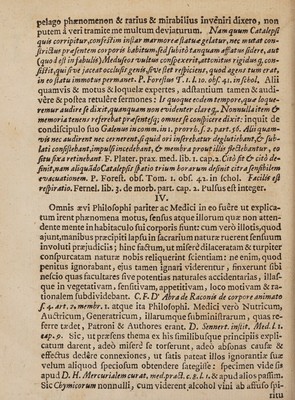 pelago phænomenon & rarius & mirabilius invéniri dixero, non
putem à veri tramite me multum deviaturum. Nam quum Catalepsi
quis corripitur, consestim instar marmorea statua gelatur, nec mutat con-
strictus præsentem corporis habitum, sed subitò tanquam afflatur sidere, aut
(quod est in fabulis) Medusæos vultus conspexerit, attonitus rigidusq; con-
sistit, quisive jaceat occlusis genis, sive stet respiciens, quod agens tum erat,
in eo statu immotus permanet. P. Forestus T. 1. l. 10. obs. 41. in schol. Alii
quamvis & motus & loquelæ expertes, adstantium tamen & audi-
vêre & postea retulêre sermones: Is quoque eodem tempore, quæ loque-
remur audire se dixit, quanquam non evidenter clareq;. Nonnulli item &
memoria tenens referebat præsentesq; omnes se conspicere dixit: inquit de
condiscipulo suo Galenus in comm. in 1. prorrh. s. 2. part. 56. Alii quam-
vis nec audirent nec cernerent, si quid ori inserebatur deglutiebant, & sub-
lati consistebant, impulsi incedebant, & membra prout illis flectebantur, eo
situ fixa retinebant. F. Plater. prax. med. lib. 1. cap. 2. Citò fit & citò de-
sinit, nam aliquãdo Catalepsis spatio trium horarum desinit citra sensibilem
evacuationem. P. Forest. obs. Tom. 1. obs. 42. in schol. Facilis est
respiratio. Fernel. lib. 3. de morb. part. cap. 2. Pulsus est integer.
IV.
Omnis ævi Philosophi pariter ac Medici in eo fuêre ut explica-
tum irent phænomena motus, sensus atque illorum quæ non atten-
dente mente in habitaculo sui corporis sunt: cum verò illotis, quod
ajunt, manibus præcipiti lapsu in sacrarium naturæ ruerent sensuum
involuti præjudiciis; hinc factum, ut miserè dilaceratam & turpiter
conspurcatam naturæ nobis reliquerint scientiam: ne enim, quod
penitus ignorabant, ejus tamen ignari viderentur, finxerunt sibi
nescio quas faculatores sive potentias naturales accidentarias, illás-
que in vegetativam, sensitivam, appetitivam, loco motivam & ra-
tionalem subdividebant. C. F. D'Abra de Raconis de corpore animato
s. 4. art. 2. memb. 1. atque ita Philosophi. Medici verò Nutricum,
Auctricum, Generatricum, illarumque subministrarum, quas re-
ferre tædet, Patroni & Authores erant. D. Sennert. instit. Med. l. 1.
cap. 9. Sic, ut præsens thema ex his similibusque principiis expli-
catum darent, adeò miserè se torserunt, adeò absonas causæ &
effectus dedêre connexiones, ut satis pateat illos ignorantiæ suæ
velum aliquod speciosum obtendere sategisse: specimen vide sis
apud D. H. Mercurialem curat. med. pract. c. 8. l. 1. & apud alios passim.
Sic Chymicorum nonnulli, cum viderent alcohol vini ab affuso spi-
ritu